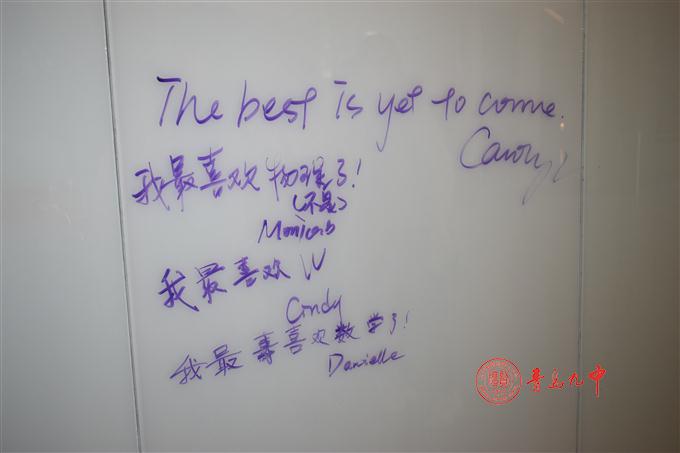 The best is yet to come.
Caroly
我最喜欢物理了!
(不是)
Monicab
我最喜欢 W
Cindy
我最喜欢数学了!
Danielle
青岛九中